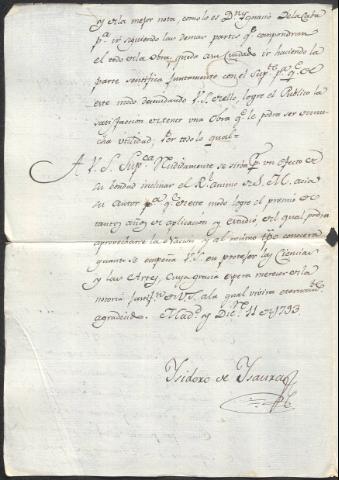 y de la mejor nota, como lo es Dn. Ignacio de la Cuba
pa. ir siguiendo las demas partes qe. compondran
el todo de la obra, queda a su Cuidado ir haciendo la
parte sentifica juntamente con el Supte. pa. qe. de
este modo decuidando V.S. de ello, logre el Publico la
satisfacion de tener una Obra qe. le podra ser de mu-
cha utilidad, Por todo lo qual =
A V.S. Supca. Rendidamente se sirva pr. un efecto de
su bondad inclinar el Rl. animo de S. M. acia
su autor pa. qe. de este modo logre el premio de
tantos años de aplicacion y estudio del qual podra
aprovecharse la Nacion y al mismo tpo. conocera
quanto se empeña V.S. en protejer las Ciencias
y las Artes, Cuya gracia espera merecer de la
notoria Justifn. de V.S. a la qual vivira eternamte.
agradecido. Madd. y Dice. 11 de 1793
Isidoro de Isaura